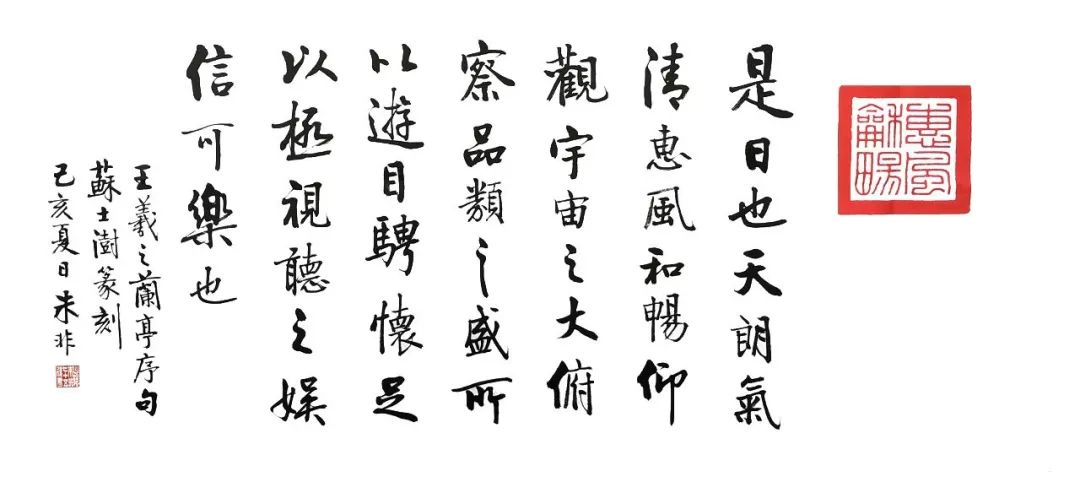 惠風龢暢
是日也天朗氣
清惠風和暢仰
觀宇宙之大俯
察品類之盛所
以遊目騁懷足
以極視聽之娛
信可樂也
王羲之蘭亭序句
蘇士澍篆刻
己亥夏日朱非